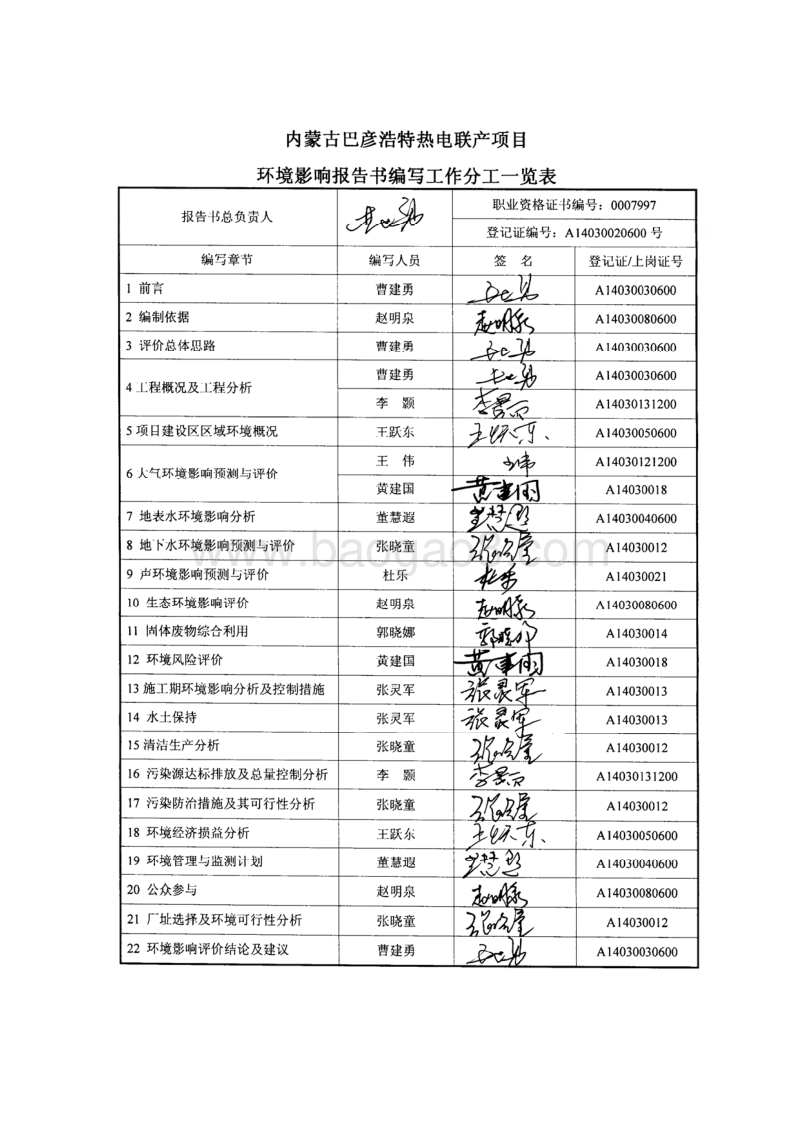 内蒙古巴彦浩特热电联产项目
环境影响报告书编写工作分工一览表
报告书总负责人 职业资格证书编号：0007997
登记证编号：A14030020600 号
编写章节 编写人员 签 名 登记证/上岗证号
1 前言 曹建勇 A14030030600
2 编制依据 赵明泉 赵明泉 A14030080600
3 评价总体思路 曹建勇 A14030030600
4 工程概况及工程分析 曹建勇 A14030030600
李 颢 李颢 A14030131200
5 项目建设区区域环境概况 王跃东 王跃东 A14030050600
6 大气环境影响预测与评价 王 伟 王伟 A14030121200
黄建国 黄建国 A14030018
7 地表水环境影响分析 董慧遐 董慧遐 A14030040600
8 地下水环境影响预测与评价 张晓童 张晓童 A14030012
9 声环境影响预测与评价 杜乐 杜乐 A14030021
10 生态环境影响评价 赵明泉 赵明泉 A14030080600
11 固体废物综合利用 郭晓娜 郭晓娜 A14030014
12 环境风险评价 黄建国 黄建国 A14030018
13 施工期环境影响分析及控制措施 张灵军 张灵军 A14030013
14 水土保持 张灵军 张灵军 A14030013
15 清洁生产分析 张晓童 张晓童 A14030012
16 污染源达标排放及总量控制分析 李 颢 李颢 A14030131200
17 污染防治措施及其可行性分析 张晓童 张晓童 A14030012
18 环境经济损益分析 王跃东 王跃东 A14030050600
19 环境管理与监测计划 董慧遐 董慧遐 A14030040600
20 公众参与 赵明泉 赵明泉 A14030080600
21 厂址选择及环境可行性分析 张晓童 张晓童 A14030012
22 环境影响评价结论及建议 曹建勇 A14030030600